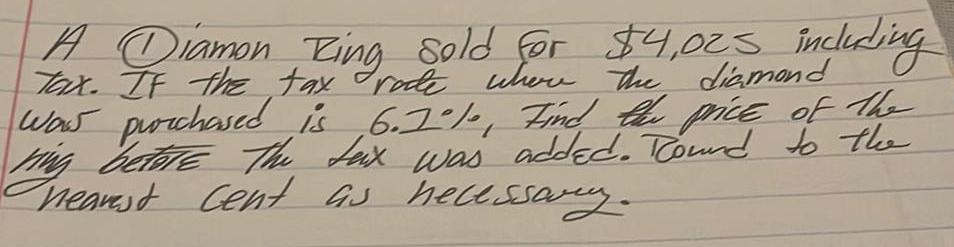 A Diamon Ring sold for $4,025 including
Tax. If the tax rate where the diamond
was purchased is 6.2%, Find the price of the
ring before the tax was added. Round to the
nearest cent as necessary.